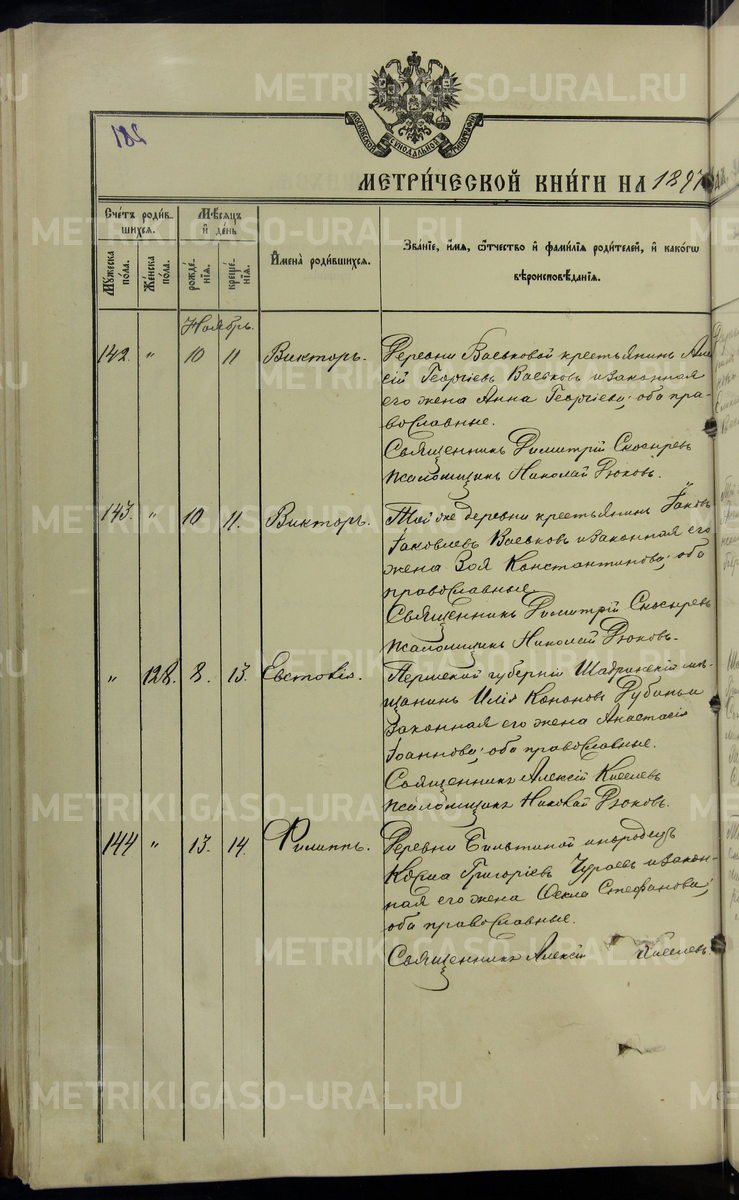 МОСКОВСКОЙ СѴНОДАЛЬНОЙ ТИПОГРАФІИ
МЕТРИ́ЧЕСКОЙ КНИ́ГИ НА 1897
Сче́тъ роди́в-
шихся.
Му́жеска по́ла.
Же́нска по́ла.
Мѣ́сяцъ
и҆ де́нь
рожде́-
нія.
креще́-
нія.
И҆мена̀ роди́вшихся.
Зва́ніе, и҆́мя, ѻ҆́тчество и҆ фами́лія роди́телей, и҆ како́гѡ
вѣроисповѣ́данія.
Ноябрь.
142. " 10 11 Викторъ.
Деревни Васьковой крестьянинъ
сій Георгіевъ Васьковъ и законная
его жена Анна Георгіева; оба пра-
вославные.
Священникъ Димитрій Скосыревъ
Псаломщикъ Николай Рюковъ.
143. " 10 11. Викторъ.
Той же деревни крестьянинъ Іаковъ
Іаковлевъ Васьковъ и законная его
жена Зоя Константинова; оба
православные.
Священникъ Димитрій Скосыревъ
Псаломщикъ Николай Рюковъ.
" 128. 8. 13.
Пермской губерніи Шадринскій мѣ-
щанинъ Илія Кононовъ
законная его жена Анастасія
Іоаннова; оба православные.
Священникъ Алексій Киселевъ
Псаломщикъ Николай Рюковъ.
144 " 13. 14. Филиппъ.
Деревни инородецъ
Косма Григоріевъ Чураевъ и закон-
ная его жена Ѳекла Стефанова;
оба православные.
Священникъ Алексій Киселевъ.
METRIKI.GASO-URAL.RU